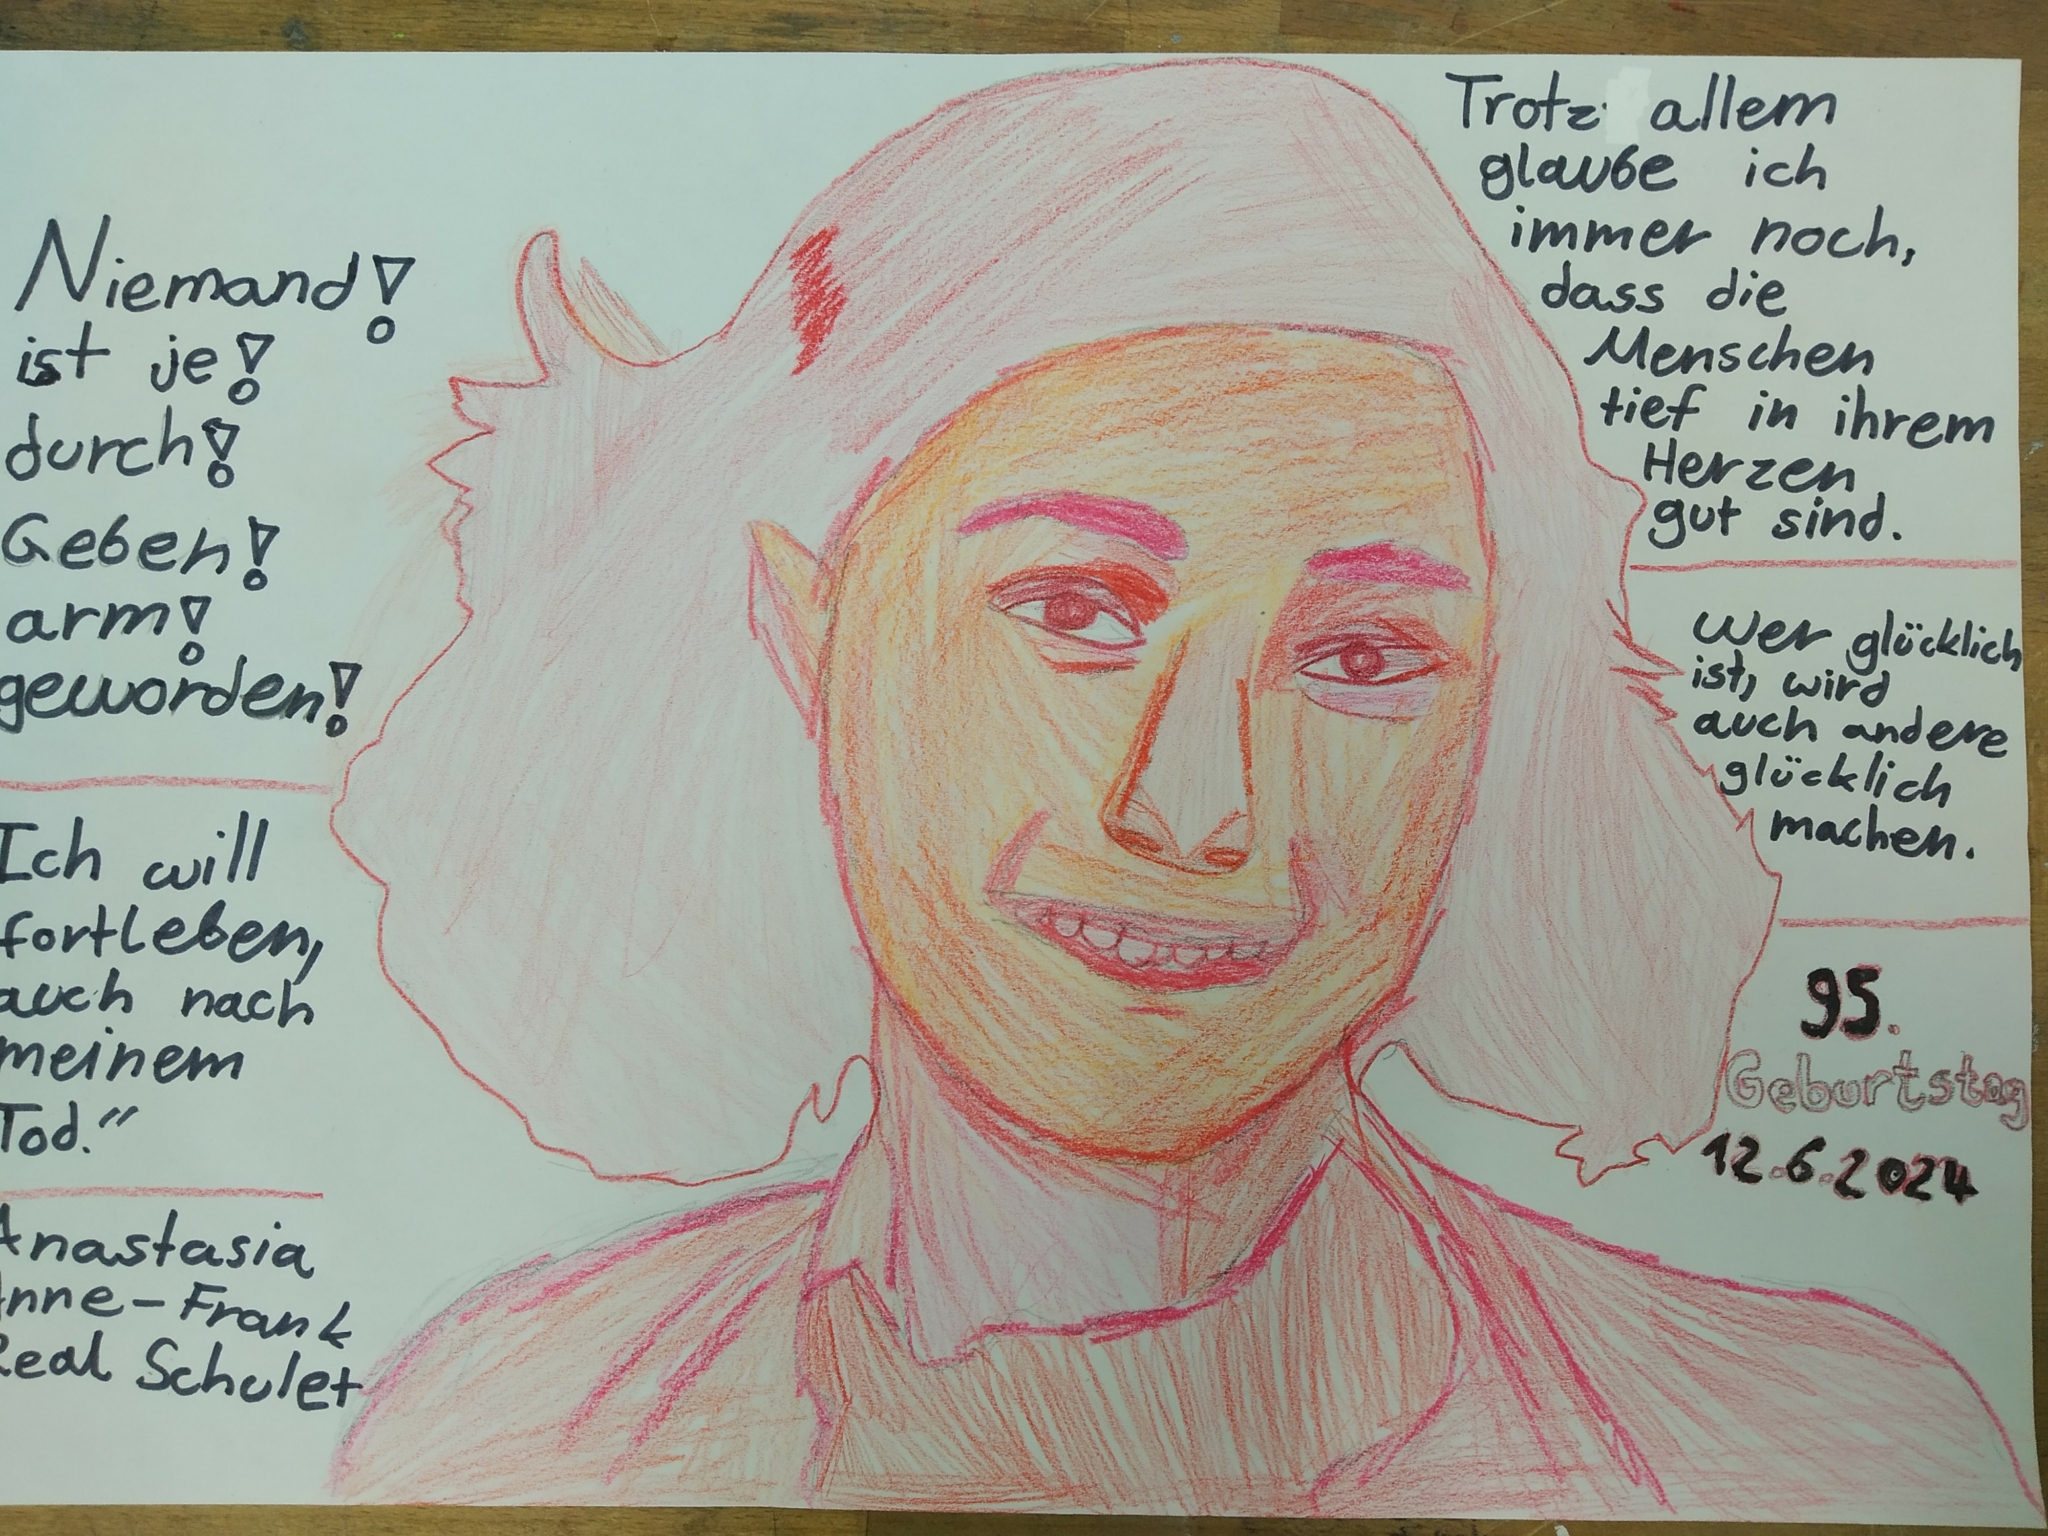 Niemand!
ist je!
durch!
Geben!
arm!
geworden!
Ich will
fortleben,
auch nach
meinem
Tod."
Anastasia
Anne-Frank
Real Schulet
Trotz allem
glaube ich
immer noch,
dass die
Menschen
tief in ihrem
Herzen
gut sind.
Wer glücklich
ist, wird
auch andere
glücklich
machen.
95.
Geburtstag
12.6.2024